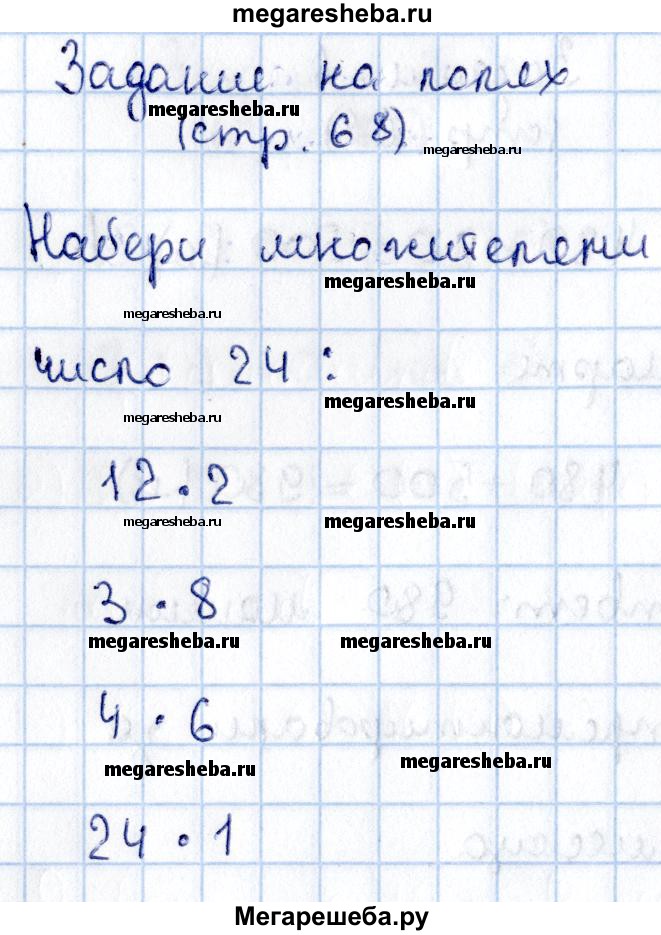 megaresheba.ru
Задание на полях
megaresheba.ru
(стр. 68)
megaresheba.ru
Набери множителями
megaresheba.ru
megaresheba.ru
число 24:
megaresheba.ru
megaresheba.ru
12 · 2
megaresheba.ru megaresheba.ru
3 · 8
megaresheba.ru megaresheba.ru
4 · 6
megaresheba.ru megaresheba.ru
24 · 1
Мегарешеба.ру